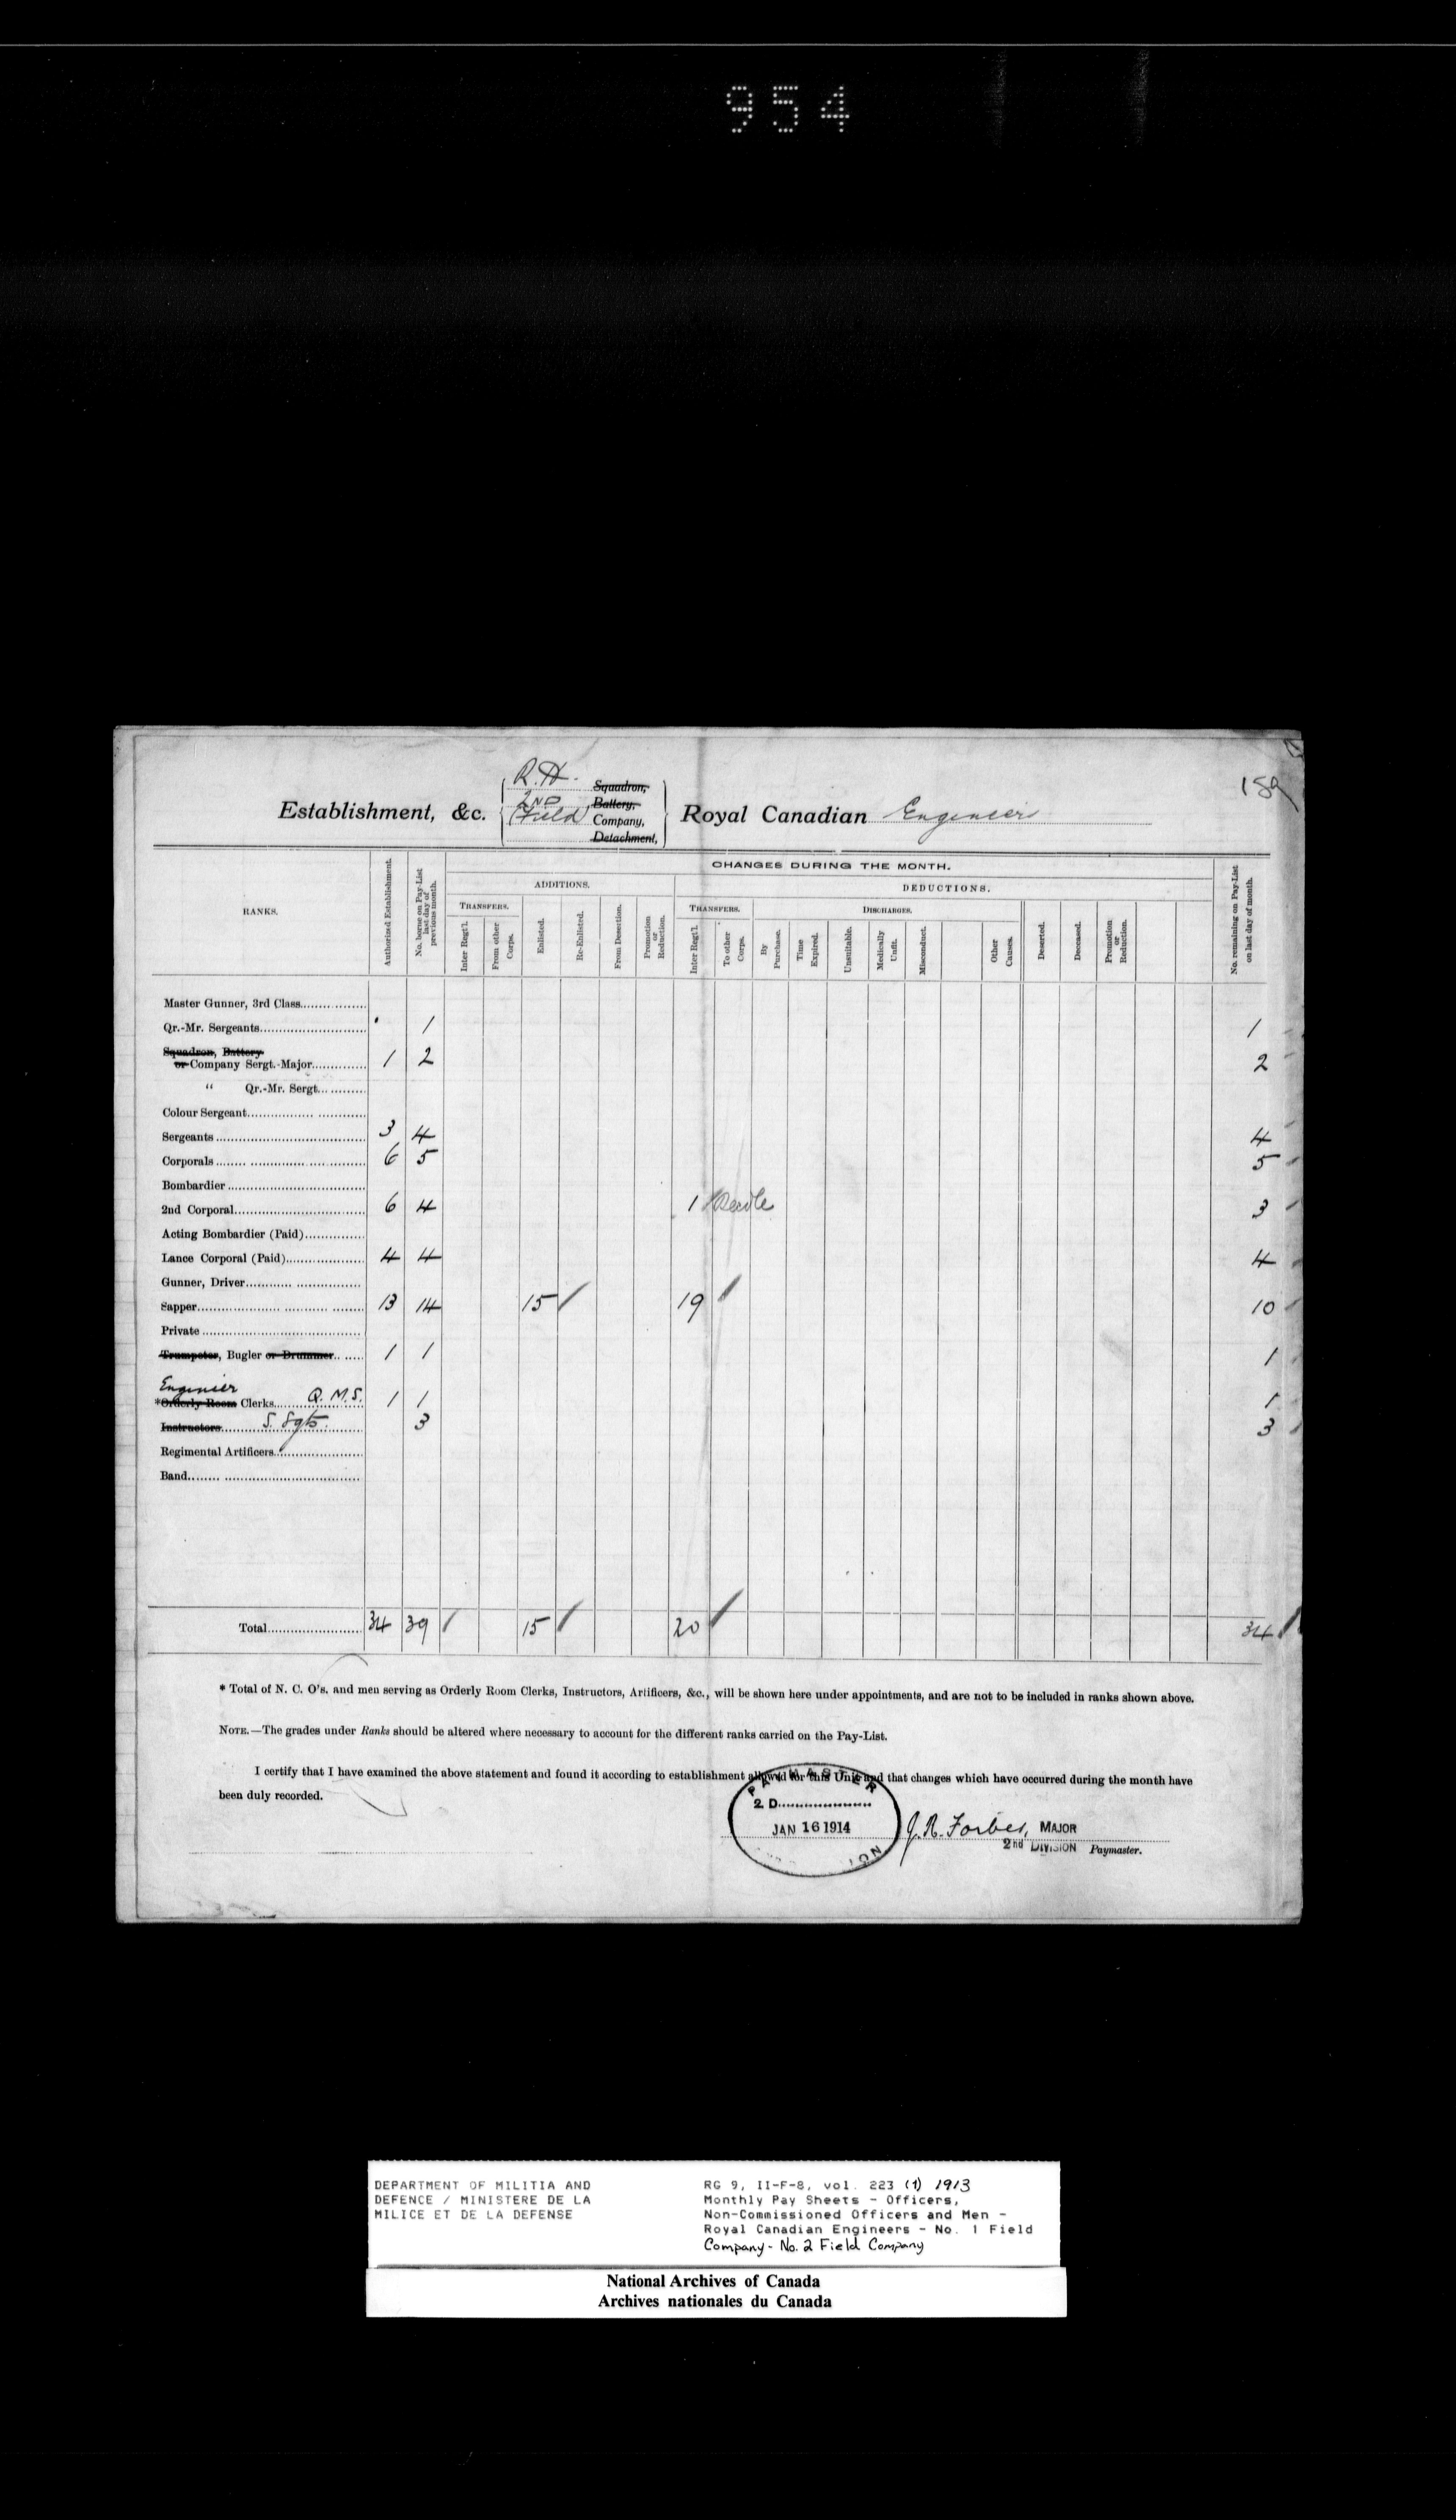 954
159
R.H.
Squadron,
2ND Battery,
Establishment, &c. Field Company, Royal Canadian Engineers
Detachment,
CHANGES DURING THE MONTH.
ADDITIONS. DEDUCTIONS.
RANKS. Authorized Establishment. No. borne on Pay-List last day of previous month. TRANSFERS. Inter Reg't'l. From other Corps. Enlisted. Re-Enlisted. From Desertion. Promotion or Reduction. TRANSFERS. Inter Reg't'l. To other Corps. DISCHARGES. By Purchase. Time Expired. Unsuitable. Medically Unfit. Misconduct. Other Causes. Deserted. Deceased. Promotion or Reduction. No. remaining on Pay-List on last day of month.
Master Gunner, 3rd Class
Qr.-Mr. Sergeants 1 1
Squadron, Battery
or Company Sergt.-Major 1 2 2
" Qr.-Mr. Sergt.
Colour Sergeant
Sergeants 3 4 4
Corporals 6 5 5
Bombardier
2nd Corporal 6 4 1 3
Acting Bombardier (Paid)
Lance Corporal (Paid) 4 4 4
Gunner, Driver
Sapper 13 14 15 19 10
Private
Trumpeter, Bugler or Drummer 1 1 1
Engineer
*Orderly Room Clerks Q.M.S. 1 1 1
Instructors S. Sgts. 3 3
Regimental Artificers
Band
Total 34 39 15 20 34
* Total of N. C. O's. and men serving as Orderly Room Clerks, Instructors, Artificers, &c., will be shown here under appointments, and are not to be included in ranks shown above.
NOTE.—The grades under Ranks should be altered where necessary to account for the different ranks carried on the Pay-List.
I certify that I have examined the above statement and found it according to establishment allowed for this Unit and that changes which have occurred during the month have
been duly recorded.
PAYMASTER
2 D
JAN 16 1914
J. R. Forbes, MAJOR
2nd DIVISION Paymaster.
DEPARTMENT OF MILITIA AND
DEFENCE / MINISTERE DE LA
MILICE ET DE LA DEFENSE
RG 9, II-F-8, vol. 223 (1) 1913
Monthly Pay Sheets - Officers,
Non-Commissioned Officers and Men -
Royal Canadian Engineers - No. 1 Field
Company - No. 2 Field Company
National Archives of Canada
Archives nationales du Canada